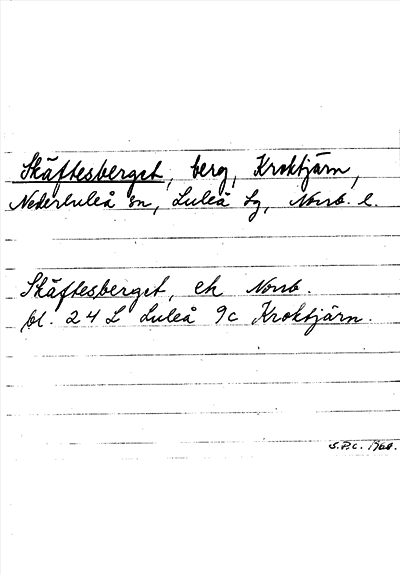 Skäftesberget, berg, Kroktjärn,
Nederluleå sn, Luleå lg, Norrb. l.
Skäftesberget, ek Norrb.
bl. 24 L Luleå 9c Kroktjärn.
S.P.C. 1960.